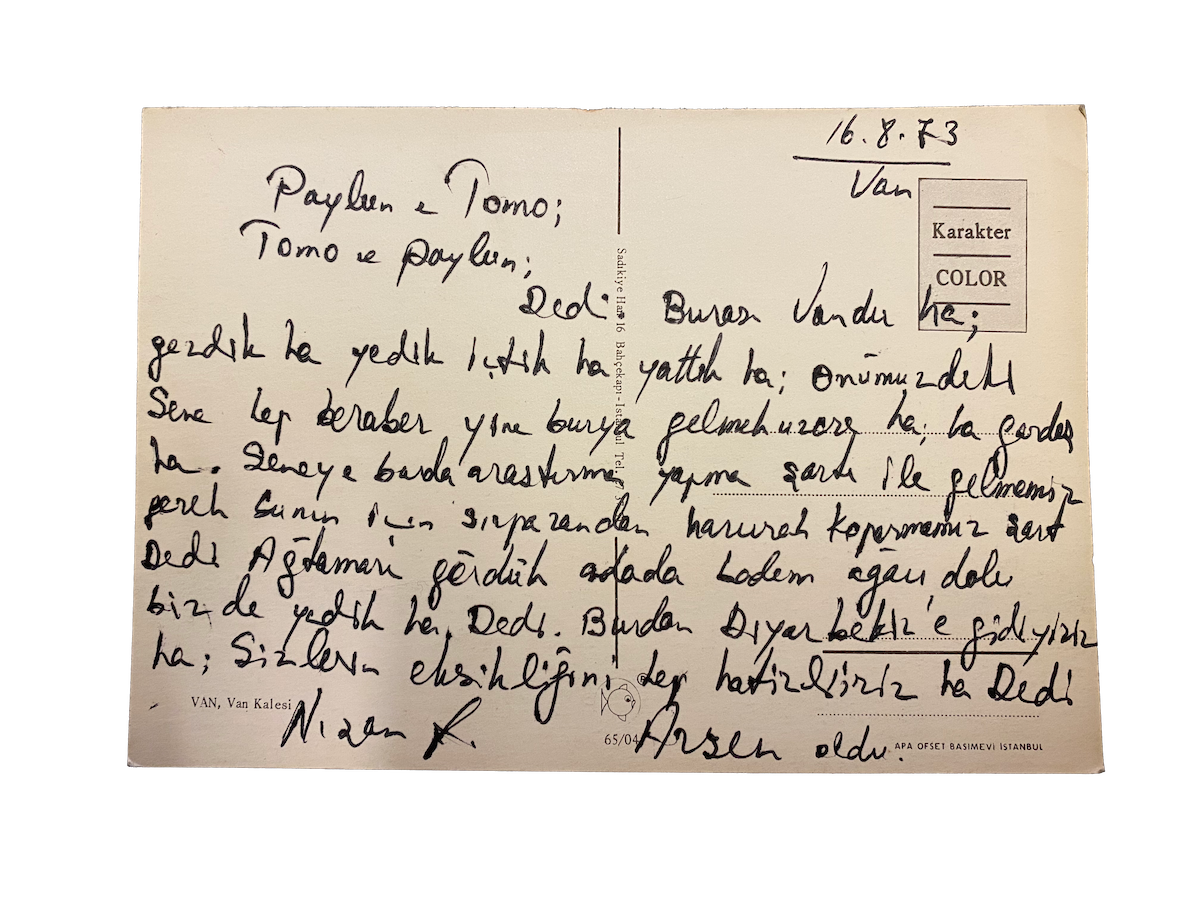 16.8.73
Van
Paylun ve Tomo;
Tomo ve paylun;
Karakter
COLOR
Dedi Burası Vandır ha;
gezdik ha yedik içtik ha yattık ha; önümüzdeki
Sene hep beraber yine burya gelmek üzere ha; ha gardeş
ha. Seneye burda araştırma yapma şartı ile gelmemiz
gerek bunun için sırpazandan harurak kopermamız şart
Dedi Ağtamarı gördük adada badem ağacı dolu
biz de yedik ha Dedi. Burdan Diyarbekir'e gidiyiriz
ha; Sizlerin eksikliğini hep hatirliiriz ha Dedi
Nişan K. Arsen oldu.
VAN, Van Kalesi
65/04
APA OFSET BASIMEVİ İSTANBUL
Sadıkiye Han 16 Bahçekapı - İstanbul Tel.